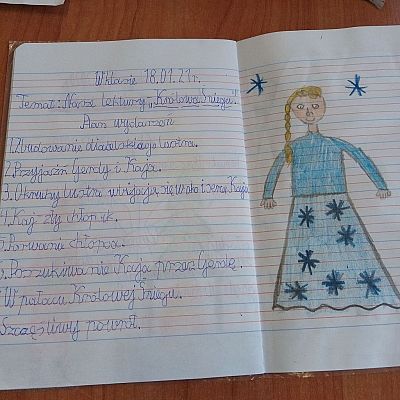 W klasie 18.01.21r.
Temat: Nasze lektury „Królowa Śniegu".
Plan wydarzeń
1. Zbudowanie diabelskiego lustra.
2. Przyjaźń Gerdy i Kaja.
3. Okruchy lustra wbijają się w oko i serce Kaja.
4. Kaj zły chłopak.
5. Porwanie chłopca.
6. Poszukiwanie Kaja przez Gerdę.
W pałacu Królowej Śniegu.
Szczęśliwy powrót.